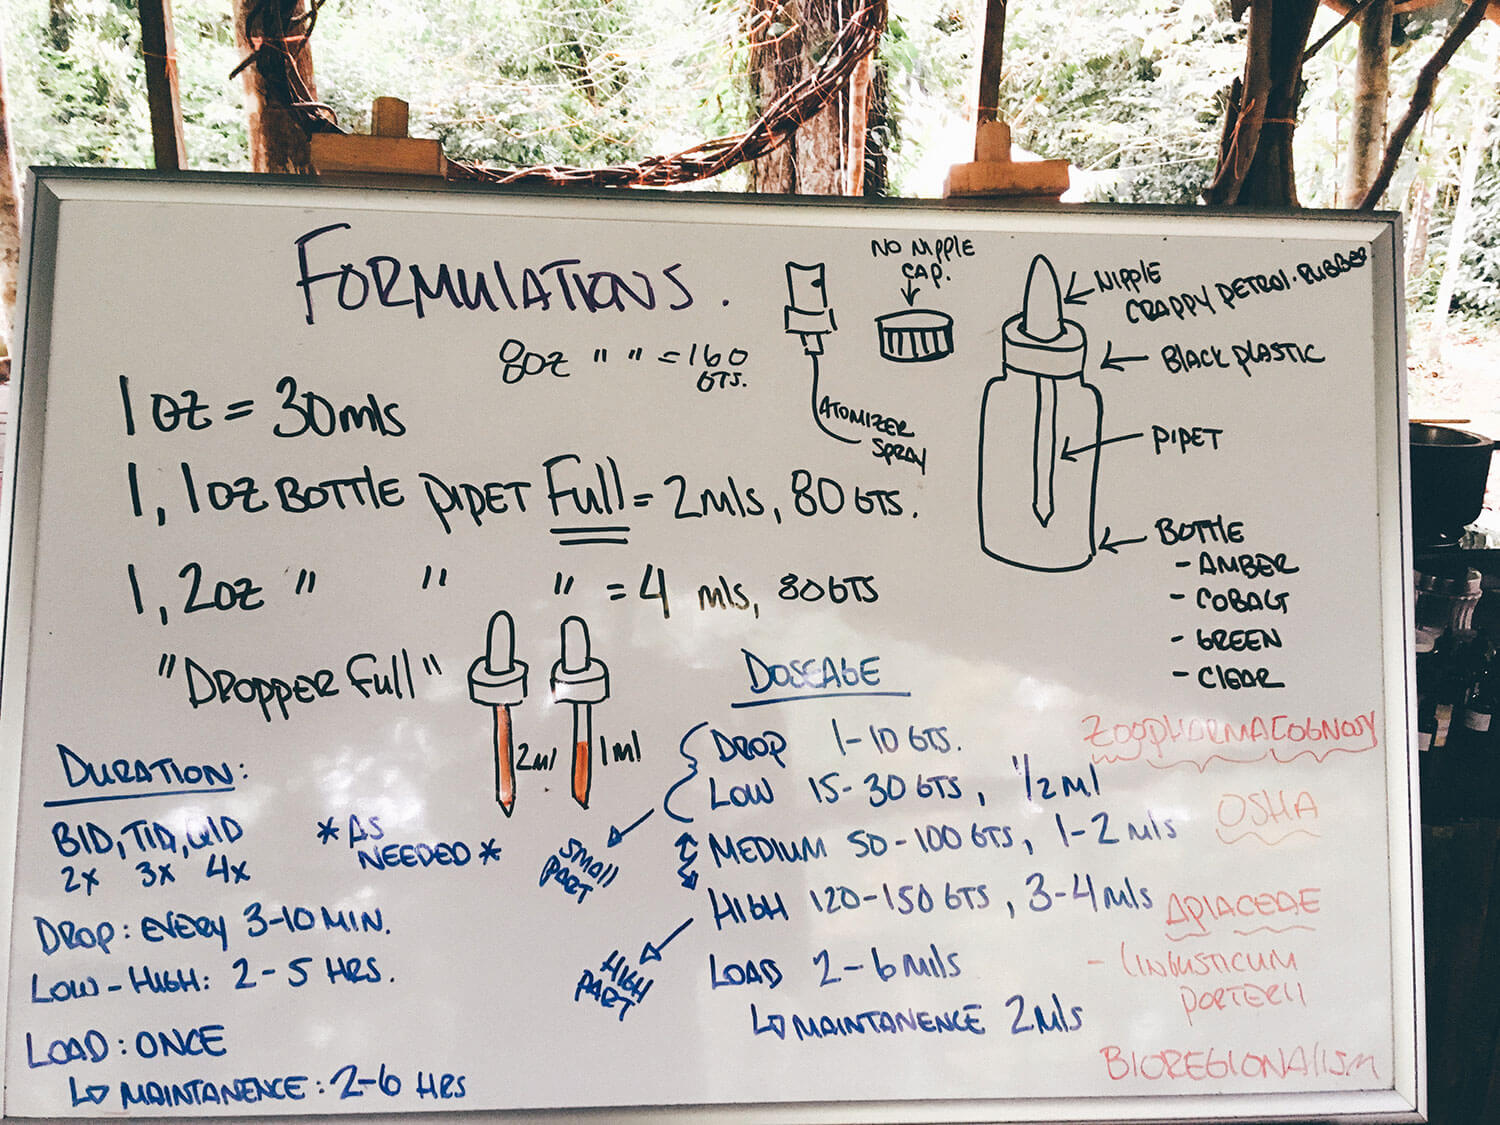 FORMULATIONS.
8oz " " = 160 GTS.
1 oz = 30mls
1, 1oz BOTTLE PIPET Full = 2mls, 80 GTS.
1, 2oz " " " = 4 mls, 80 GTS
"DROPPER Full"
2ml
1ml
NO NIPPLE
CAP.
ATOMIZER
SPRAY
NIPPLE
CRAPPY PETROL. RUBBER
BLACK PLASTIC
PIPET
BOTTLE
- AMBER
- COBALT
- GREEN
- CLEAR
DURATION:
BID, TID, QID
2x 3x 4x
*AS
NEEDED*
DROP: EVERY 3-10 MIN.
LOW-HIGH: 2-5 HRS.
LOAD: ONCE
↳ MAINTANENCE: 2-6 HRS
DOSEAGE
DROP 1-10 GTS.
LOW 15-30 GTS, 1/2 ml
MEDIUM 50-100 GTS, 1-2 mls
HIGH 120-150 GTS, 3-4 mls
LOAD 2-6 mils
↳ MAINTANENCE 2mls
SMALL
PART
HIGH
PART
ZOOPHARMACOGNOSY
OSHA
APIACEAE
- LINGUSTICUM
PORTERII
BIOREGIONALISM